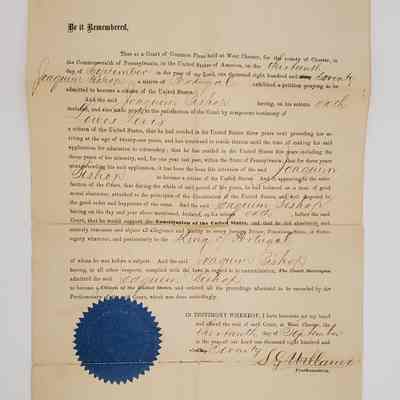 Be it Remembered,
That at a Court of Common Pleas held at West Chester, for the county of Chester, in
the Commonwealth of Pennsylvania, in the United States of America, on the thirteenth
day of September in the year of our Lord, one thousand eight hundred and seventy
Joaquim Bishop, a native of Portugal exhibited a petition praying to be
admitted to become a citizen of the United States.
And the said Joaquim Bishop having, on his solemn oath
declared, and also made proof to the satisfaction of the Court by competent testimony of
Lewis
a citizen of the United States, that he had resided in the United States three years next preceding his ar-
riving at the age of twenty-one years, and has continued to reside therein until the time of making his said
application for admission to citizenship; that he has resided in the United States five years including the
three years of his minority, and, for one year last past, within the State of Pennsylvania; that for three years
preceding his said application, it has been the bona fide intention of the said Joaquim
Bishop to become a citizen of the United States. And it appearing to the satis-
faction of the Court, that during the whole of said period of five years, he had behaved as a man of good
moral character, attached to the principles of the Constitution of the United States, and well disposed to
the good order and happiness of the same. And the said Joaquim Bishop
having on the day and year above mentioned, declared, on his solemn oath before the said
Court, that he would support the Constitution of the United States, and that he did absolutely and
entirely renounce and abjure all allegiance and fidelity to every foreign Prince, Potentate, State, or Sove-
reignty whatever, and particularly to the King of Portugal
of whom he was before a subject. And the said Joaquim Bishop
having, in all other respects, complied with the laws in regard to naturalization, the Court thereupon
admitted the said Joaquim Bishop
to become a Citizen of the United States, and ordered all the proceedings aforesaid to be recorded by the
Prothonotary of the said Court, which was done accordingly.
IN TESTIMONY WHEREOF, I have hereunto set my hand
and affixed the seal of said Court, at West Chester, the
thirteenth day of September
in the year of our Lord one thousand eight hundred and
seventy
Prothonotary.